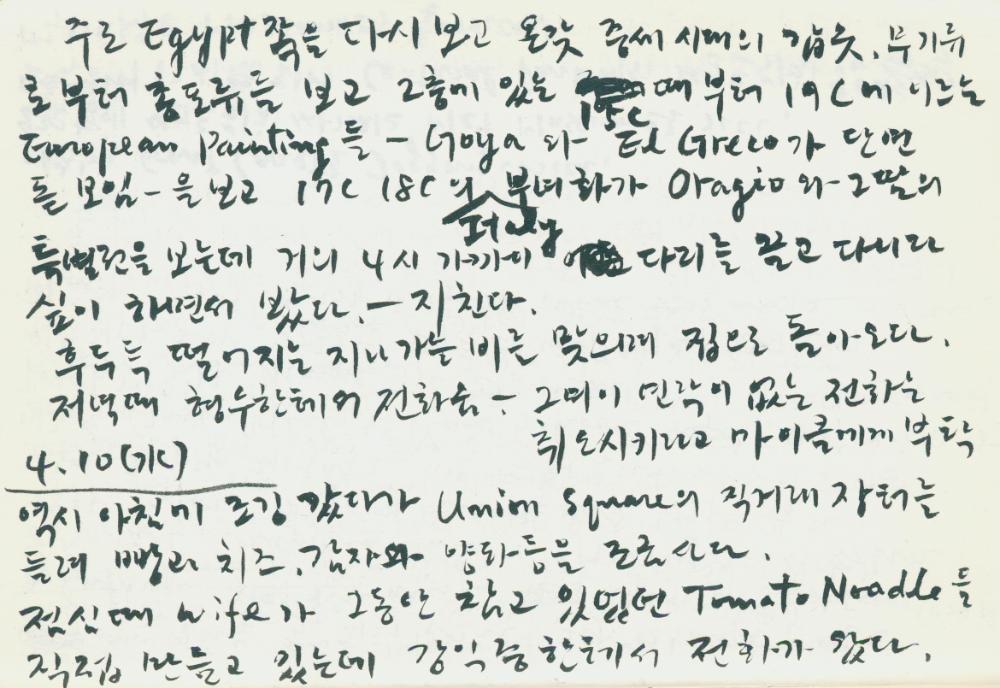 주로 Egypt 쪽을 다시 보고 온갖 중세 시대의 갑옷, 무기류
로부터 총도류들 보고 2층에 있는 15C 때부터 19C에 이르는
European Painting들 - Goya와 El Greco가 단연
돋보임 - 을 보고 17C 18C의 Italy 부녀화가 Oragio와 그 딸의
특별전을 보는데 거의 4시 가까이 다리를 끌고 다니다
싶이 하면서 봤다. - 지친다.
후두득 떨어지는 지나가는 비를 맞으며 집으로 돌아오다.
저녁때 형우한테의 전화옴 - 2명이 연락이 없는 전화는
취소시키라고 마이클에게 부탁
4. 10 (水)
역시 아침에 조깅 갔다가 Union Square의 직거래 장터를
들려 빵과 치즈, 감자와 양파등을 조금 사다.
점심때 wife가 그동안 참고 있었던 Tomato Noodle을
직접 만들고 있는데 강익중한테서 전화가 왔다.